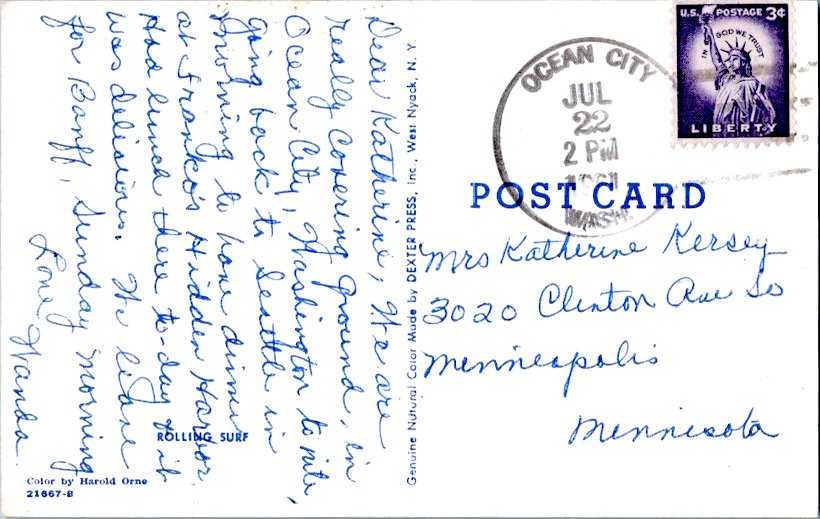 Dear Katherine, We are
really covering ground, in
Ocean City, Washington to nite,
going back to Seattle in
morning to have dinner
at Franko's Hidden Harbor.
Had lunch there to-day & it
was delicious. We leave
for Banff, Sunday morning
Love Wanda.
ROLLING SURF
Color by Harold Orne
21667-B
Genuine Natural Color Made by DEXTER PRESS, Inc., West Nyack, N. Y.
OCEAN CITY
JUL
22
2 PM
WASH.
U.S. POSTAGE 3¢
IN GOD WE TRUST
LIBERTY
POST CARD
Mrs Katherine Kersey
3020 Clinton Ave So
Minneapolis
Minnesota